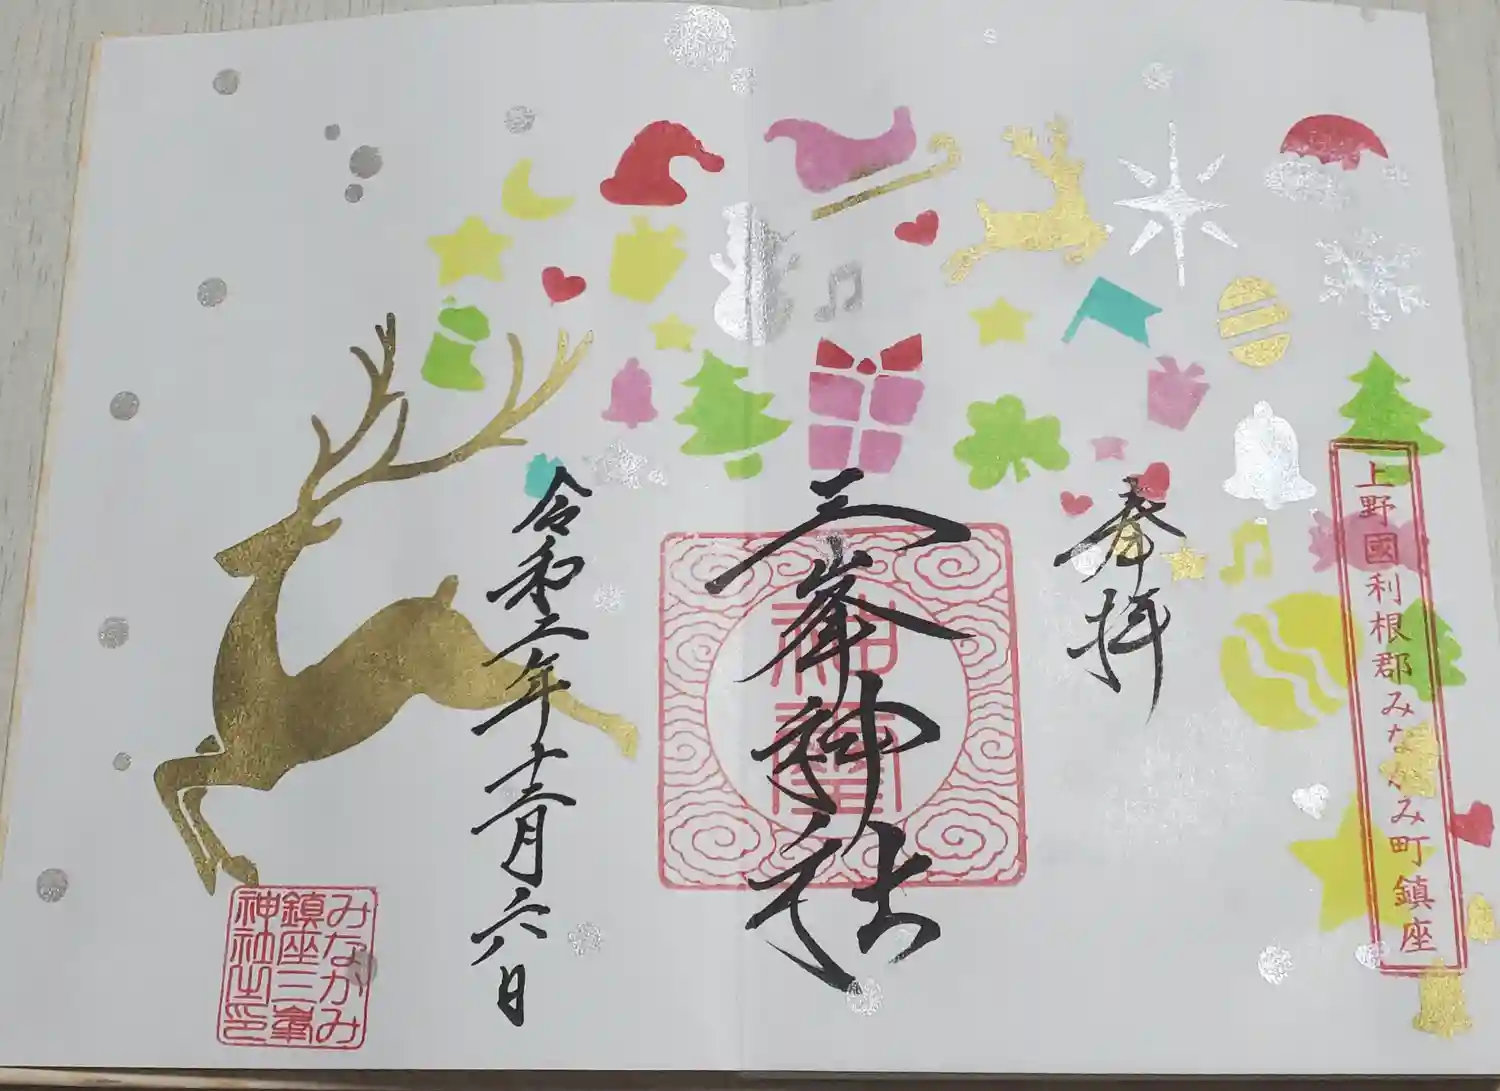 上野國利根郡みなかみ町鎮座
奉拝
三峯神社
令和二年十二月六日
みなかみ
鎮座三峯
神社之印